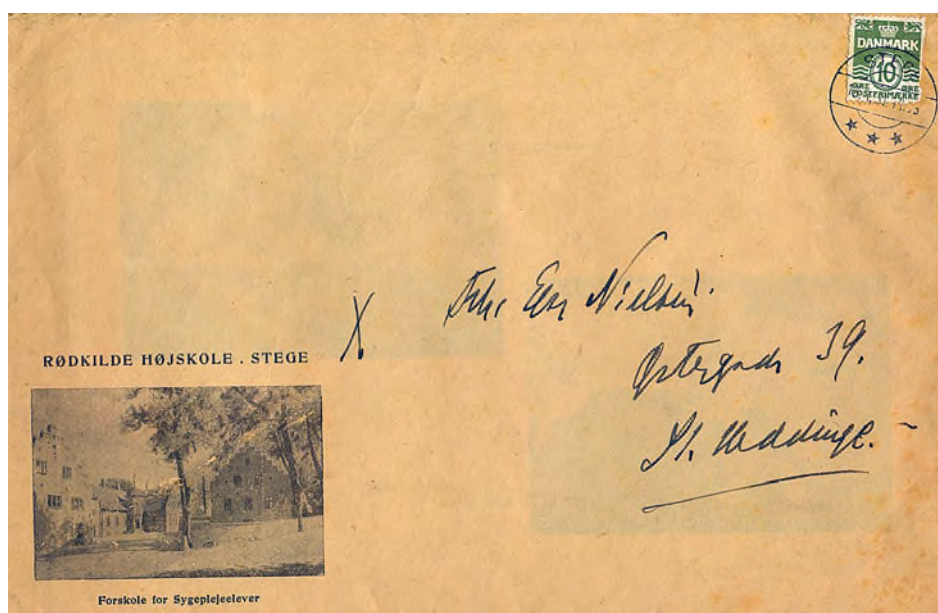 DANMARK
10
ØRE ØRE
POSTFRIMÆRKE
Frk. Else Nielsen.
Østergade 39.
St. Heddinge.
RØDKILDE HØJSKOLE . STEGE
X
Forskole for Sygeplejeelever